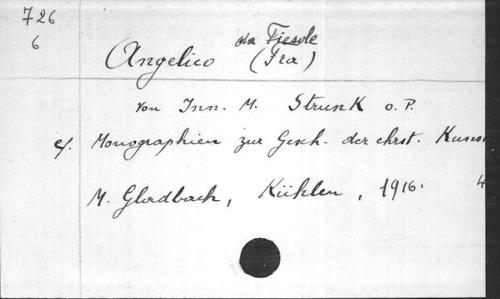 726
6
Angelico da Fiesole
(Fra)
von Inn. M. Strunk O. P.
cf. Monographien zur Gesch. der chrst. Kuns
M. Gladbach, Kühlen, 1916. 4